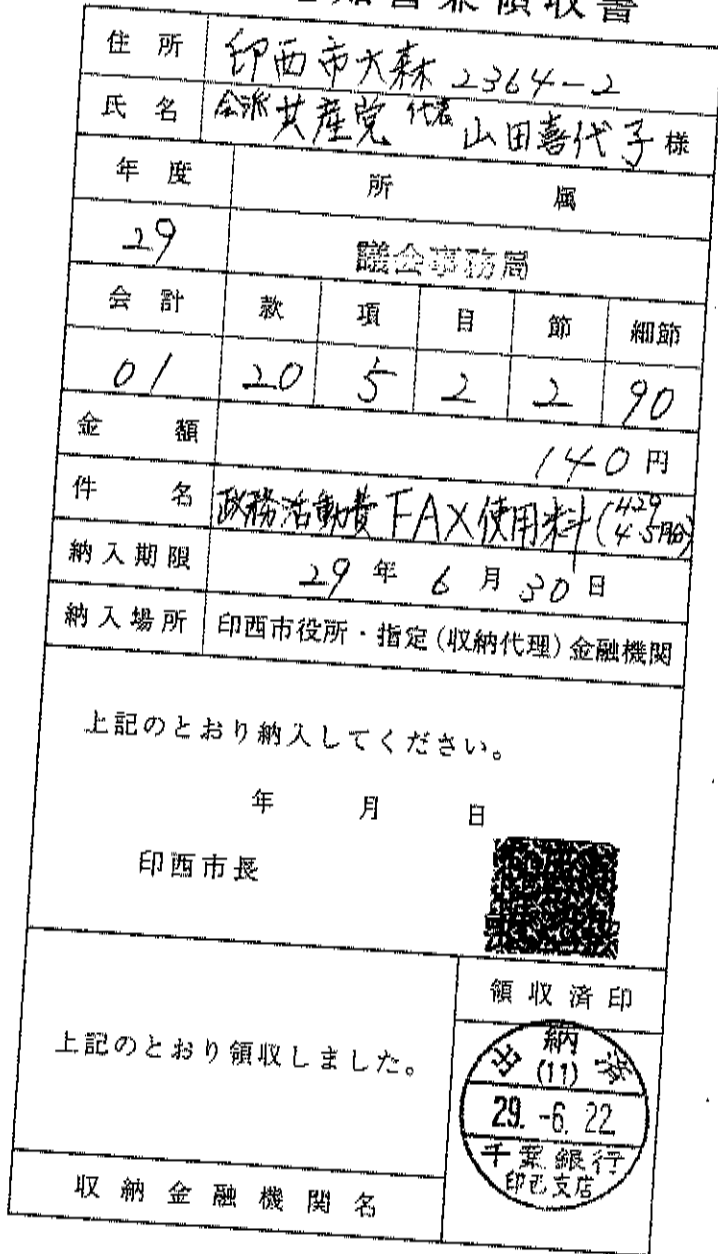 知書兼領収書
住所 印西市大森2364-2
氏名 会派 共産党 代表 山田喜代子 様
年度 所属
29 議会事務局
会計 款 項 目 節 細節
01 20 5 2 2 90
金額 140円
件名 政務活動費FAX使用料(H29 4.5月分)
納入期限 29年6月30日
納入場所 印西市役所・指定(収納代理)金融機関
上記のとおり納入してください。
年 月 日
印西市長
領収済印
上記のとおり領収しました。
出納済
(11)
29. -6. 22
千葉銀行
印西支店
収納金融機関名